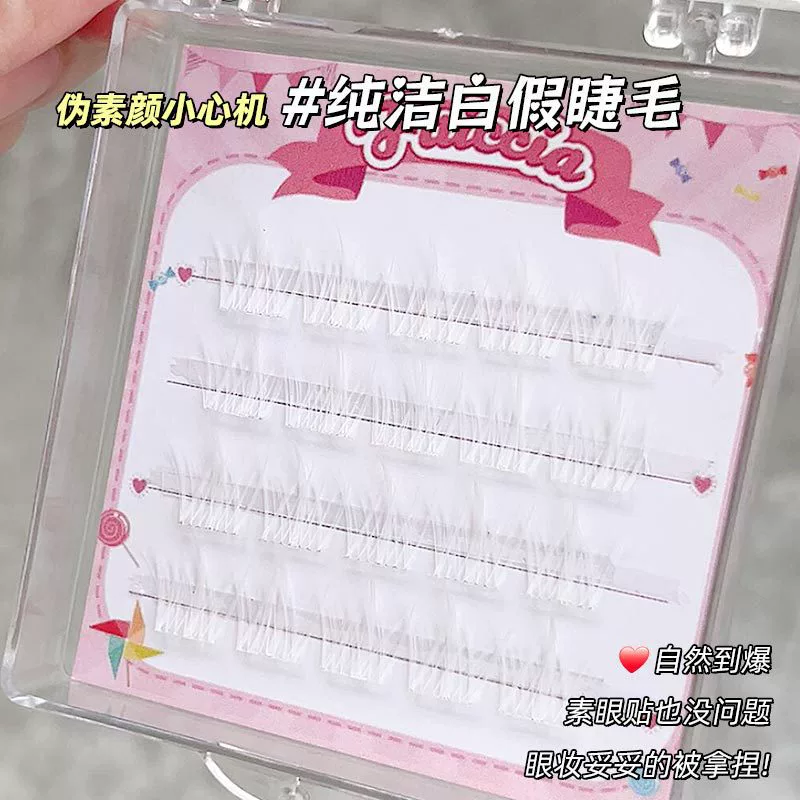 伪素颜小心机 #纯洁白假睫毛
自然到爆
素眼贴也没问题
眼妆妥妥的被拿捏!